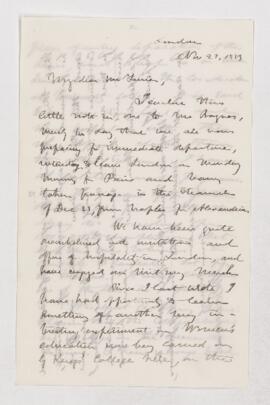 London
Nov 27, 1919
My dear Mr
I enclose this
little note in one to Mrs
merely to say that we are now
preparing for immediate departure,
to leave London on Monday
morning for Paris and having
taken passage in the Steamer
of Dec 23, from Naples for Alexandria.
We have been quite
overwhelmed with invitations and
offers of hospitality in London, and
have enjoyed our visit very much
Since I last wrote I
have had opportunity to learn
something of another very in-
teresting experiment in Women's
education now being carried on
by King's College here, in the